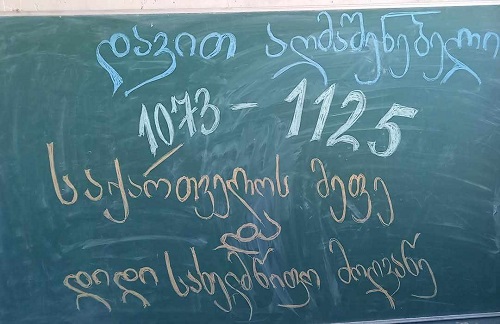 დავით აღმაშენებელი
1073 - 1125
საქართველოს მეფე
და
დიდი სახელმწიფო მოღვაწე